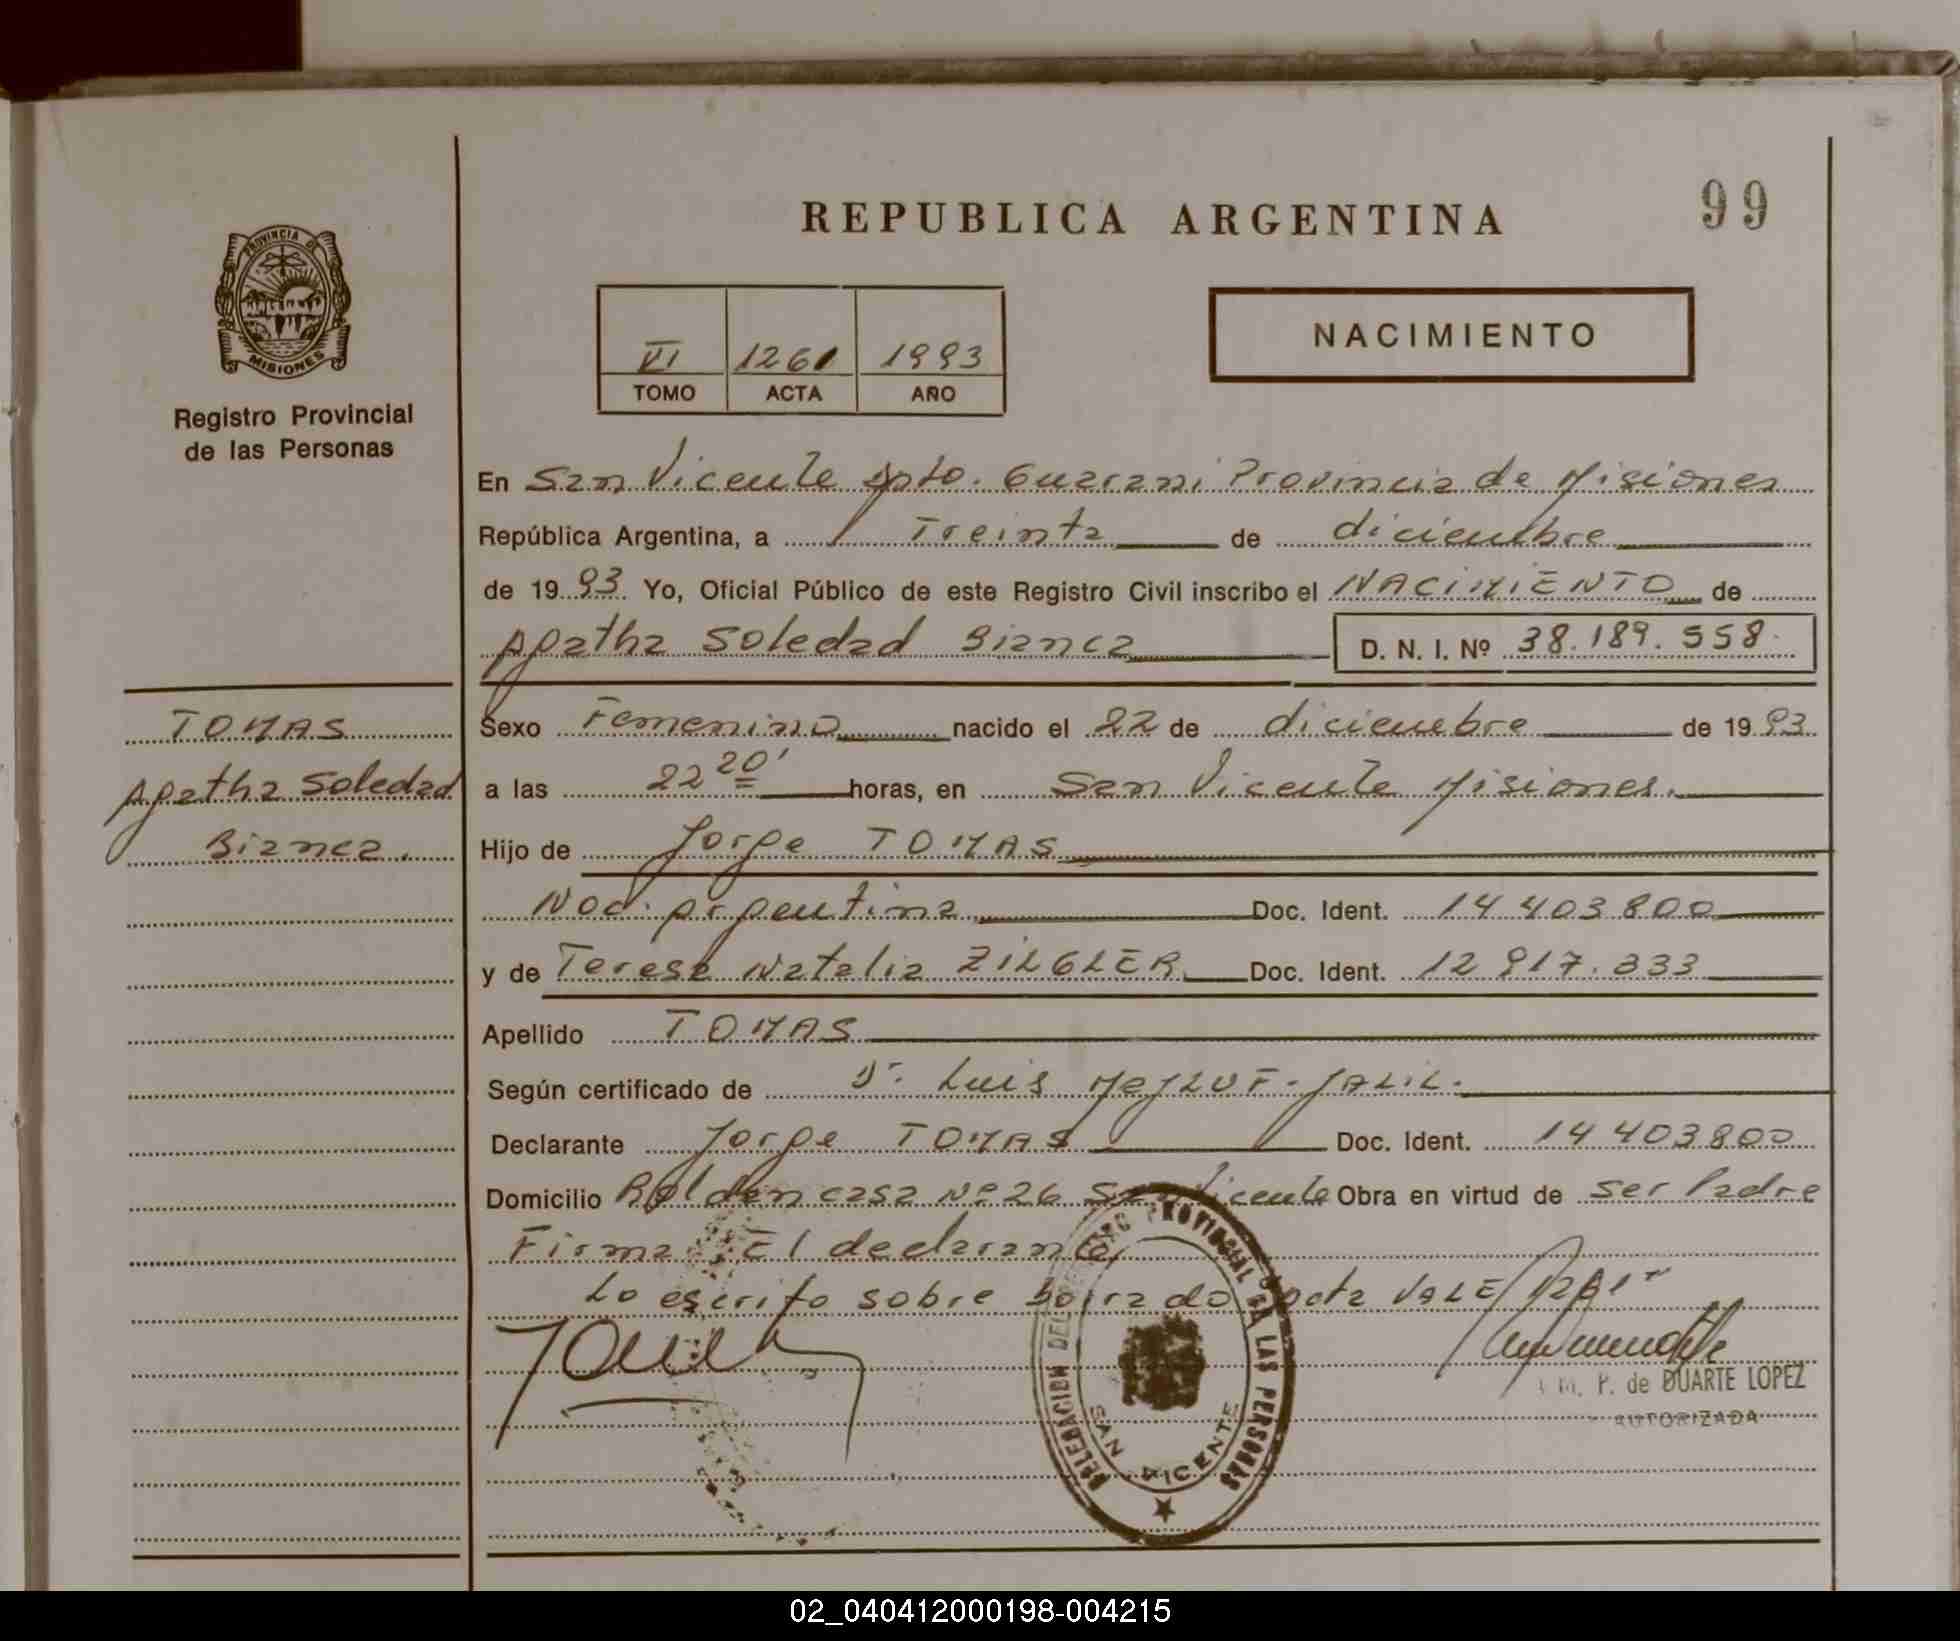 99
REPUBLICA ARGENTINA
PROVINCIA DE
MISIONES
Registro Provincial
de las Personas
NACIMIENTO
VI 1261 1993
TOMO ACTA AÑO
En San Vicente Dpto. Guarani Provincia de Misiones
República Argentina, a Treinta de diciembre
de 1993 Yo, Oficial Público de este Registro Civil inscribo el NACIMIENTO de
Agatha Soledad Bianca D. N. I. Nº 38.189.558
TOMAS
Agatha Soledad
Bianca.
Sexo Femenino nacido el 22 de diciembre de 1993
a las 22 20' horas, en San Vicente Misiones.
Hijo de Jorge TOMAS
Nac. Argentina Doc. Ident. 14 403 800
y de Teresa Natalia ZILGLER Doc. Ident. 12 917.333
Apellido TOMAS
Según certificado de Dr. Luis JALIL.
Declarante Jorge TOMAS Doc. Ident. 14 403 800
Domicilio Roldan casa Nº 26 San Vicente Obra en virtud de ser Padre
Firma El declarante
Lo escrito sobre borrado Acta VALE 1261"
DELEGACION DEL REGISTRO PROVINCIAL DE LAS PERSONAS
SAN VICENTE
M. P. de DUARTE LOPEZ
AUTORIZADA
02_040412000198-004215